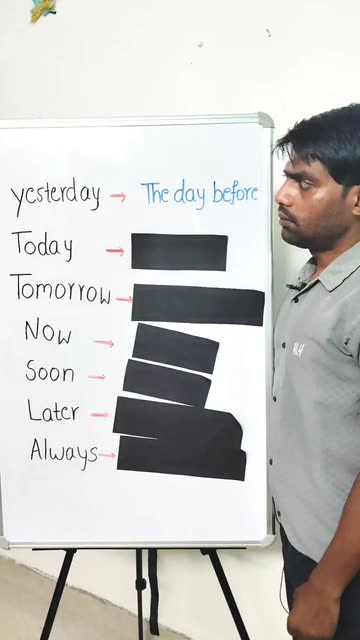 yesterday → The day before
Today →
Tomorrow →
Now →
Soon →
Later →
Always →